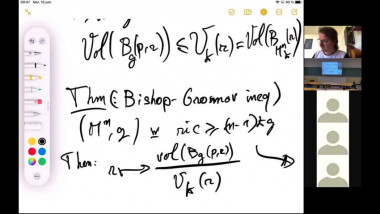 09:41 Mar. 15 juin
Vol(B_g(p,r)) ≤ V_k(r) = Vol(B_{M^n_k}(r))
Thm (Bishop-Gromov ineq)
(M^n, g) w ric ≥ (n-1)kg
Then: r ↦ vol(B_g(p,r)) / V_k(r) ↘